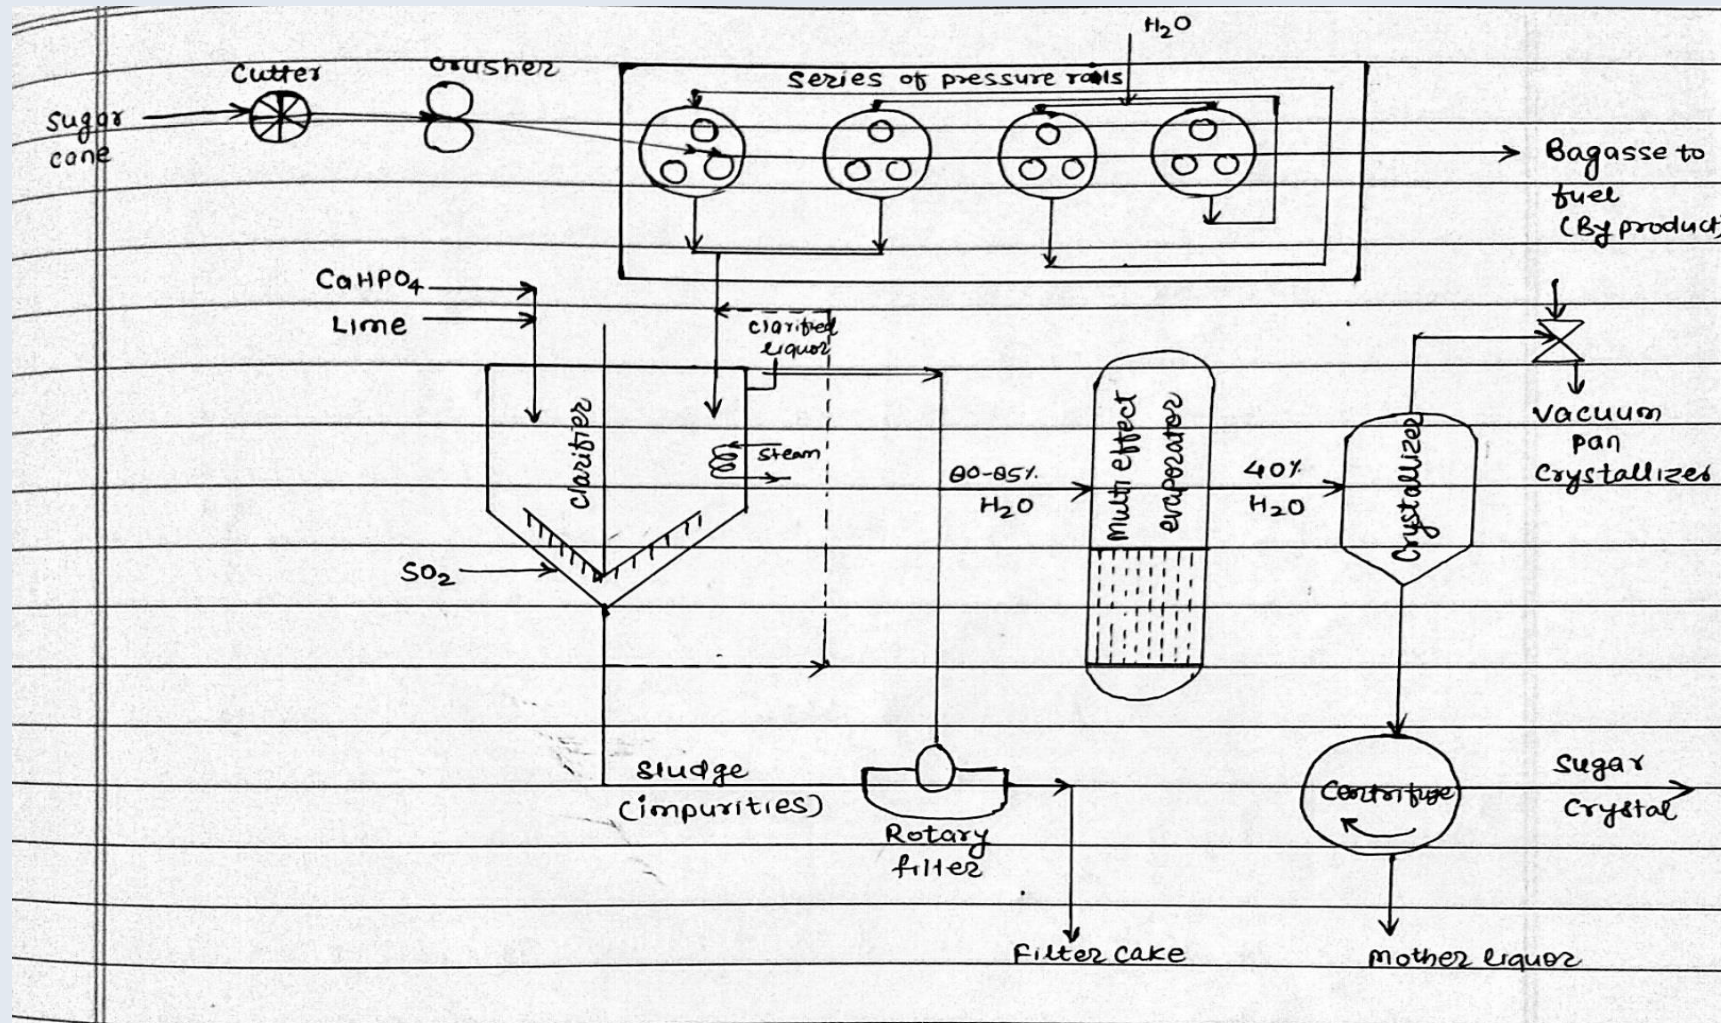 H₂O
Cutter
Crusher
Series of pressure rolls
Sugar
cane
Bagasse to
fuel
(By product)
CaHPO₄
Lime
clarified
liquor
clarifier
steam
SO₂
80-85%
H₂O
Multi effect
evaporator
40%
H₂O
Crystallizer
Vacuum
pan
Crystallizer
Sludge
(impurities)
Rotary
filter
Filter cake
Centrifuge
Sugar
Crystal
Mother liquor